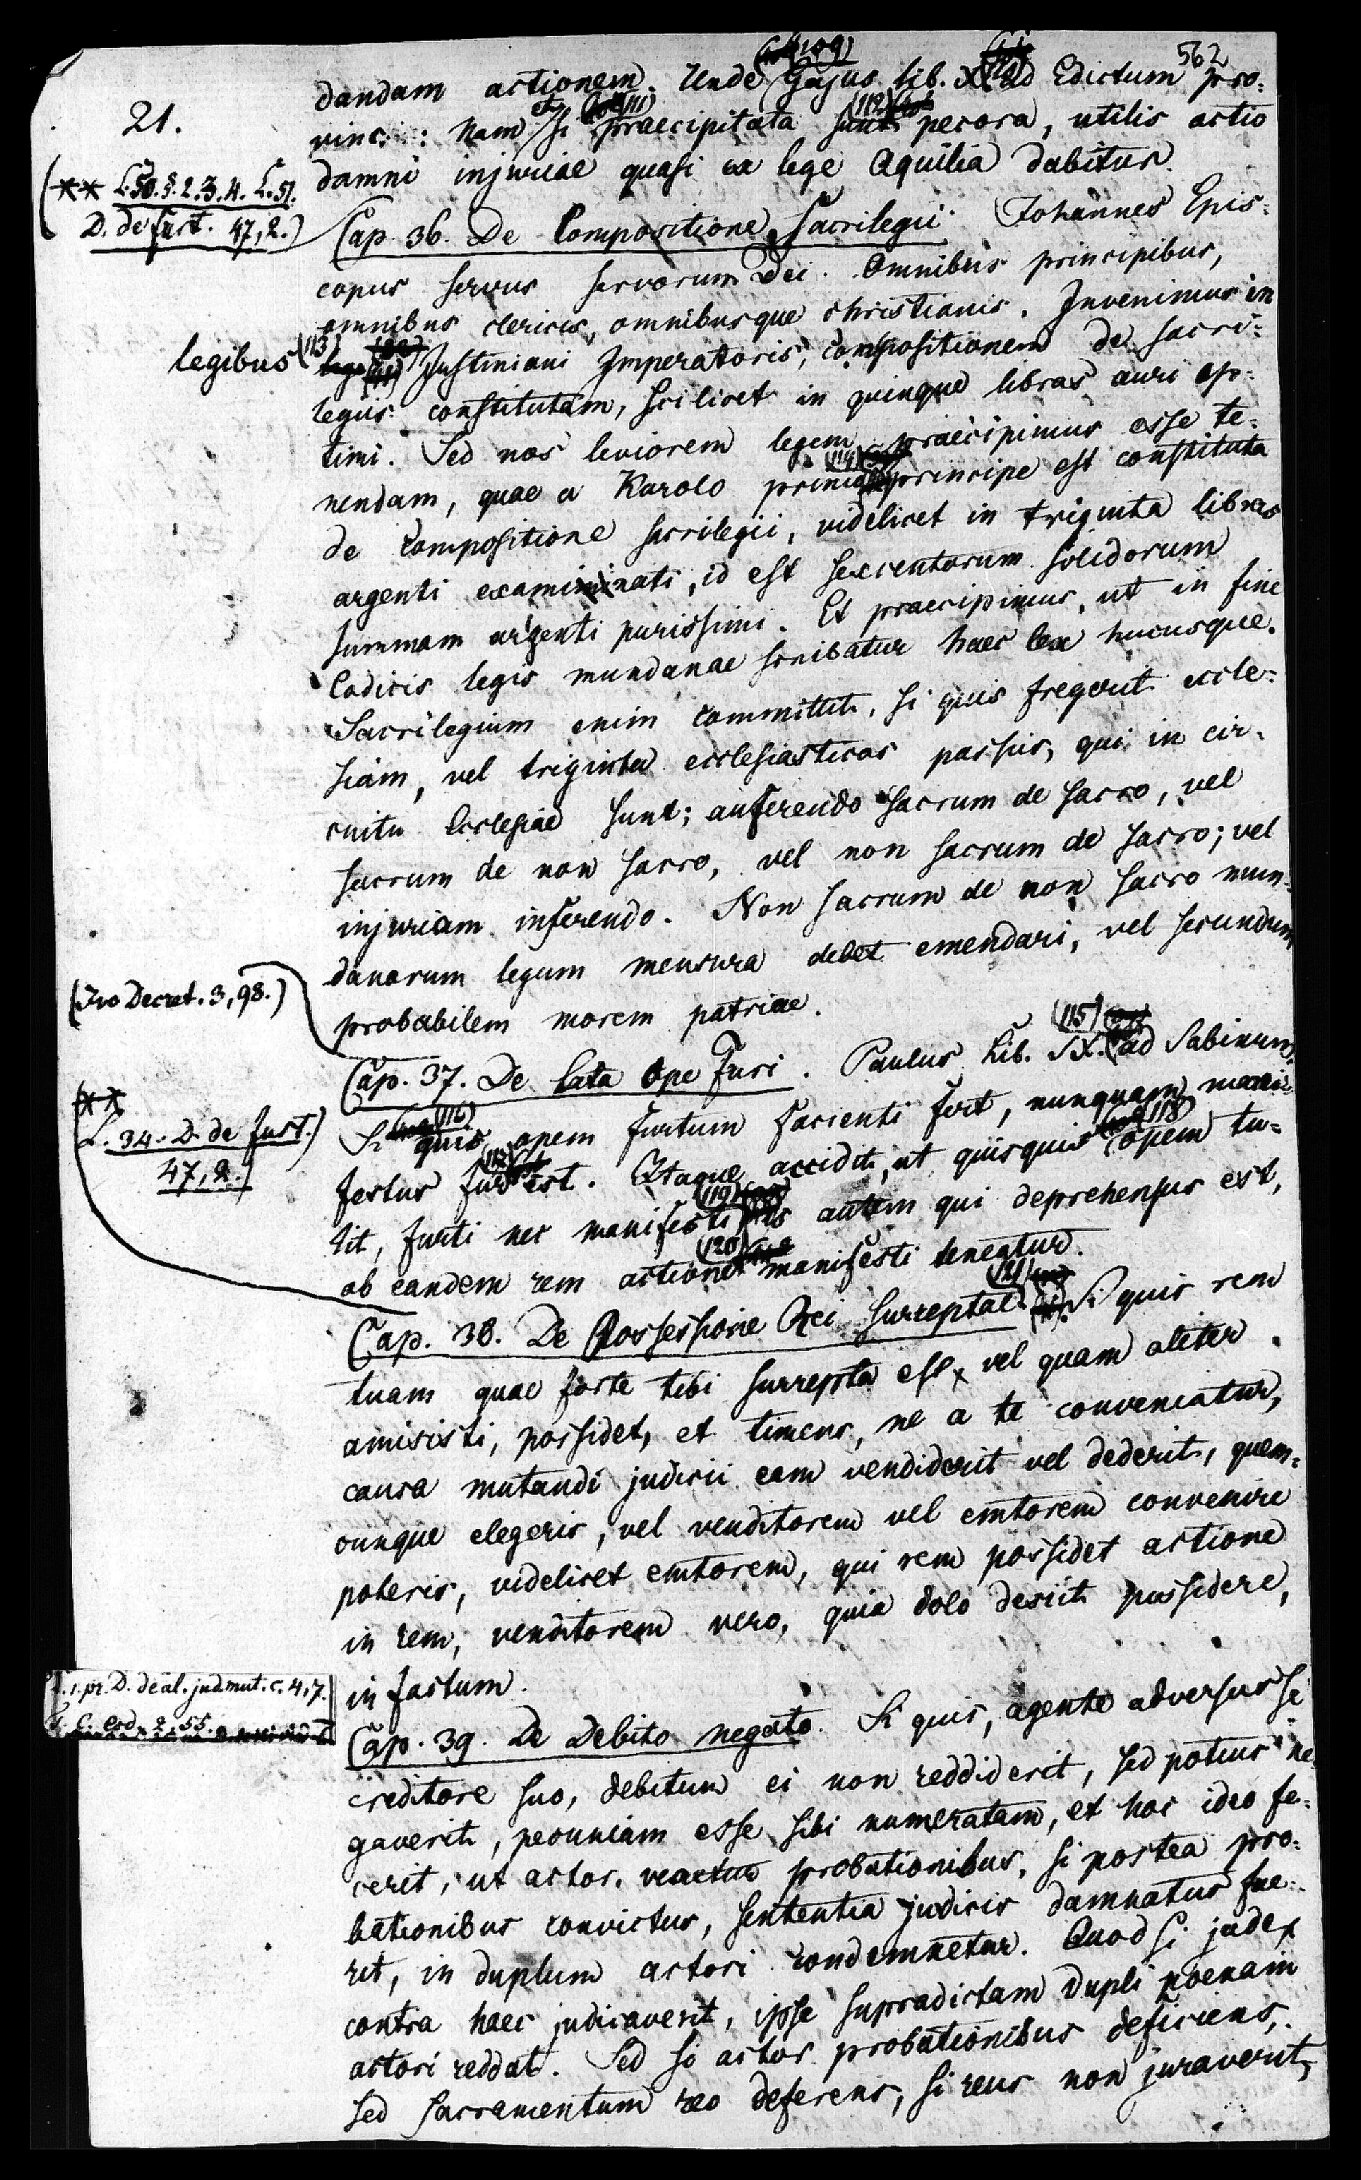 562
21.
dandam actionem. Unde (109) Gajus lib. X. ad Edictum pro-
vinc.: Nam si (111) praecipitata (112) sunt pecora, utilis actio
damni injuriae quasi ex lege Aquilia dabitur.
(** L. 50. §. 2. 3. 4. L. 51.
D. de furt. 47, 2.)
Cap. 36. De Compositione Sacrilegii. Johannes Epis-
copus servus servorum Dei. Omnibus principibus,
omnibus clericis, omnibusque christianis. Invenimus in
legibus (113) Justiniani Imperatoris, compositionem de sacri-
legiis constitutam, scilicet in quinque libras auri op-
timi. Sed nos leviorem legem praecipimus esse te-
nendam, quae a Karolo primo (114) principe est constituta
de compositione sacrilegii, videlicet in triginta libras
argenti examinati, id est sexcentorum solidorum
summam argenti purissimi. Et praecipimus, ut in fine
Codicis legis mundanae scribatur haec lex hucusque.
Sacrilegium enim committit, si quis fregerit eccle-
siam, vel triginta ecclesiasticos passus, qui in cir-
cuitu Ecclesiae sunt; auferendo sacrum de sacro, vel
sacrum de non sacro, vel non sacrum de sacro; vel
injuriam inferendo. Non sacrum de non sacro mun-
danarum legum mensura debet emendari, vel secundum
probabilem morem patriae.
(Ivo Decret. 3, 98.)
Cap. 37. De lata Ope Furi. Paulus Lib. IX. (115) ad Sabinum,
Si quis (116) opem furtum facienti fert, nunquam mani-
festus fur (117) est. Itaque accidit, ut quisquis (118) opem tu-
lit, furti nec manifesti (119) is autem qui deprehensus est,
ob eandem rem actione (120) manifesti teneatur.
(**
L. 34. D. de furt.)
47, 2.)
Cap. 38. De Possessione Rei surreptae. (121) Si quis rem
tuam quae forte tibi surrepta est, vel quam aliter
amisisti, possidet, et timens, ne a te conveniatur,
causa mutandi judicii eam vendiderit vel dederit, quem-
cunque elegeris, vel venditorem vel emtorem convenire
poteris, videlicet emtorem, qui rem possidet actione
in rem, venditorem vero, quia dolo desiit possidere,
in factum.
L. 1. pr. D. de al. jud. mut. c. 4, 7.
L. C. eod. 2. 55.
Cap. 39. De Debito negato. Si quis, agente adversus se
creditore suo, debitum ei non reddiderit, sed potius ne-
gaverit, pecuniam esse sibi numeratam, et hoc ideo fe-
cerit, ut actor. vexetur probationibus, si postea pro-
bationibus convictus, sententia judicis damnatus fue-
rit, in duplum actori condemnetur. Quod si judex
contra haec judicaverit, ipse supradictam dupli poenam
actori reddat. Sed si actor probationibus deficiens,
sed sacramentum reo deferens, si reus non juraverit,